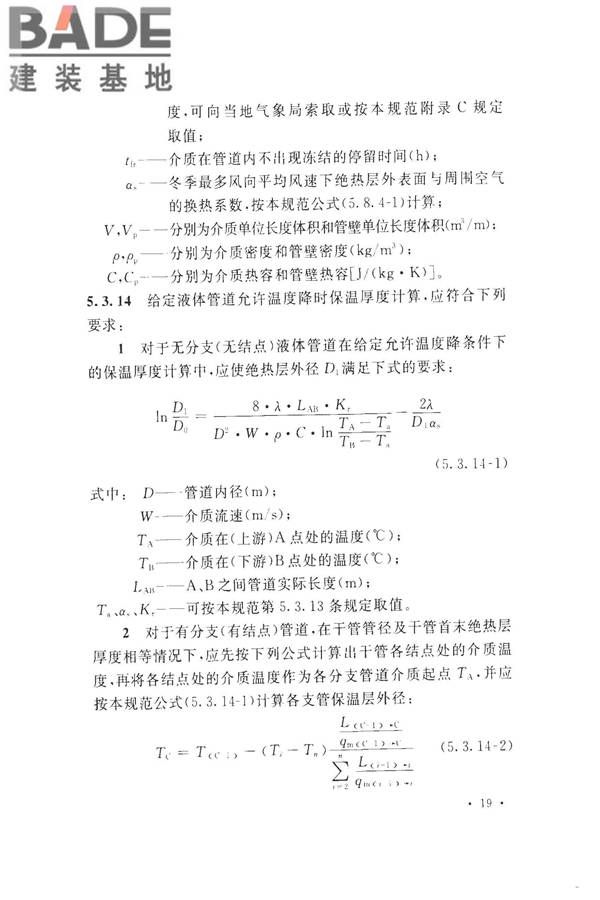 BADE
建装基地
度,可向当地气象局索取或按本规范附录 C 规定
取值;
t_fr——介质在管道内不出现冻结的停留时间(h);
α_s——冬季最多风向平均风速下绝热层外表面与周围空气
的换热系数,按本规范公式(5.8.4-1)计算;
V,V_p——分别为介质单位长度体积和管壁单位长度体积(m³/m);
ρ,ρ_p——分别为介质密度和管壁密度(kg/m³);
C,C_p——分别为介质热容和管壁热容[J/(kg·K)]。
5.3.14 给定液体管道允许温度降时保温厚度计算,应符合下列
要求:
1 对于无分支(无结点)液体管道在给定允许温度降条件下
的保温厚度计算中,应使绝热层外径 D₁满足下式的要求:
ln D₁/D₀ = 8·λ·L_AB·K_r / (D²·W·ρ·C·ln (T_A − T_a)/(T_B − T_a)) − 2λ/(D₁α_s)
(5.3.14-1)
式中: D——管道内径(m);
W——介质流速(m/s);
T_A——介质在(上游)A 点处的温度(℃);
T_B——介质在(下游)B 点处的温度(℃);
L_AB——A、B 之间管道实际长度(m);
T_a、α_s、K_r——可按本规范第 5.3.13 条规定取值。
2 对于有分支(有结点)管道,在干管管径及干管首末绝热层
厚度相等情况下,应先按下列公式计算出干管各结点处的介质温
度,再将各结点处的介质温度作为各分支管道介质起点 T_A,并应
按本规范公式(5.3.14-1)计算各支管保温层外径:
(5.3.14-2)
·19·